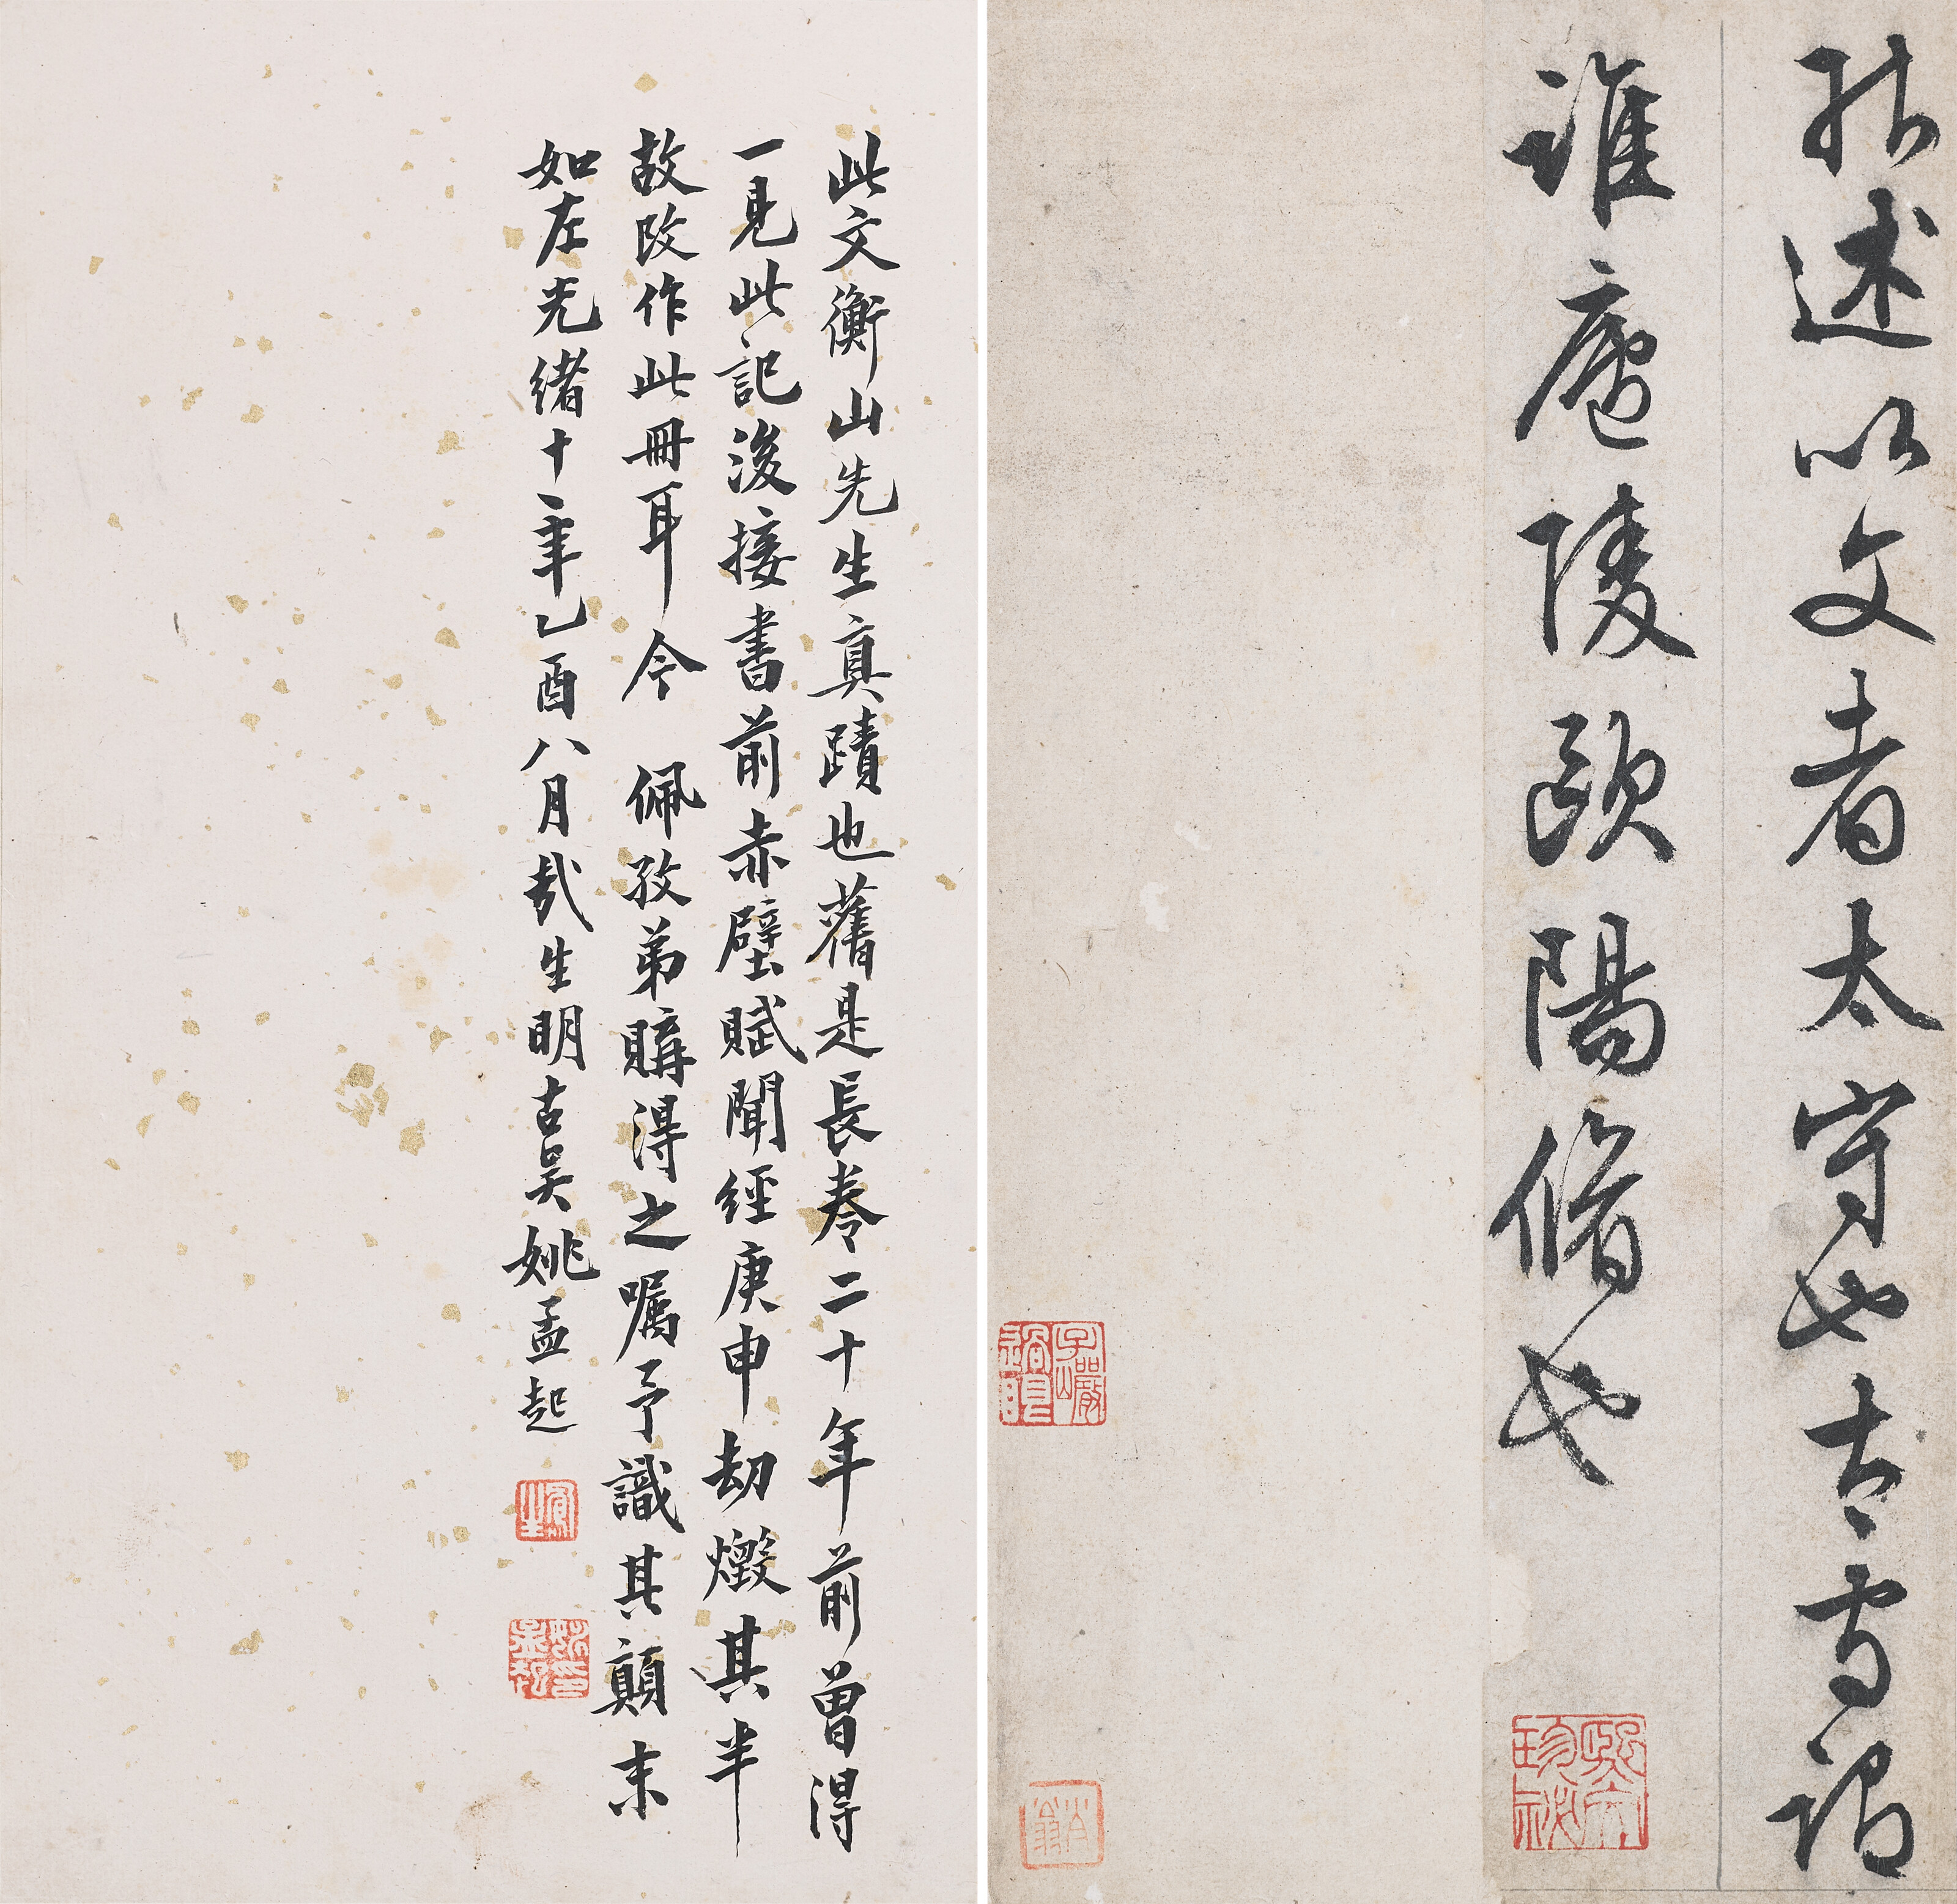 能述以文者太守也太守謂
誰廬陵歐陽脩也
此文衡山先生真蹟也舊是長卷二十年前曾得
一見此記後接書前赤壁賦聞經庚申劫燬其半
故改作此冊耳今 佩孜弟購得之囑予識其顛末
如左光緒十一年乙酉八月哉生明古吳姚孟起